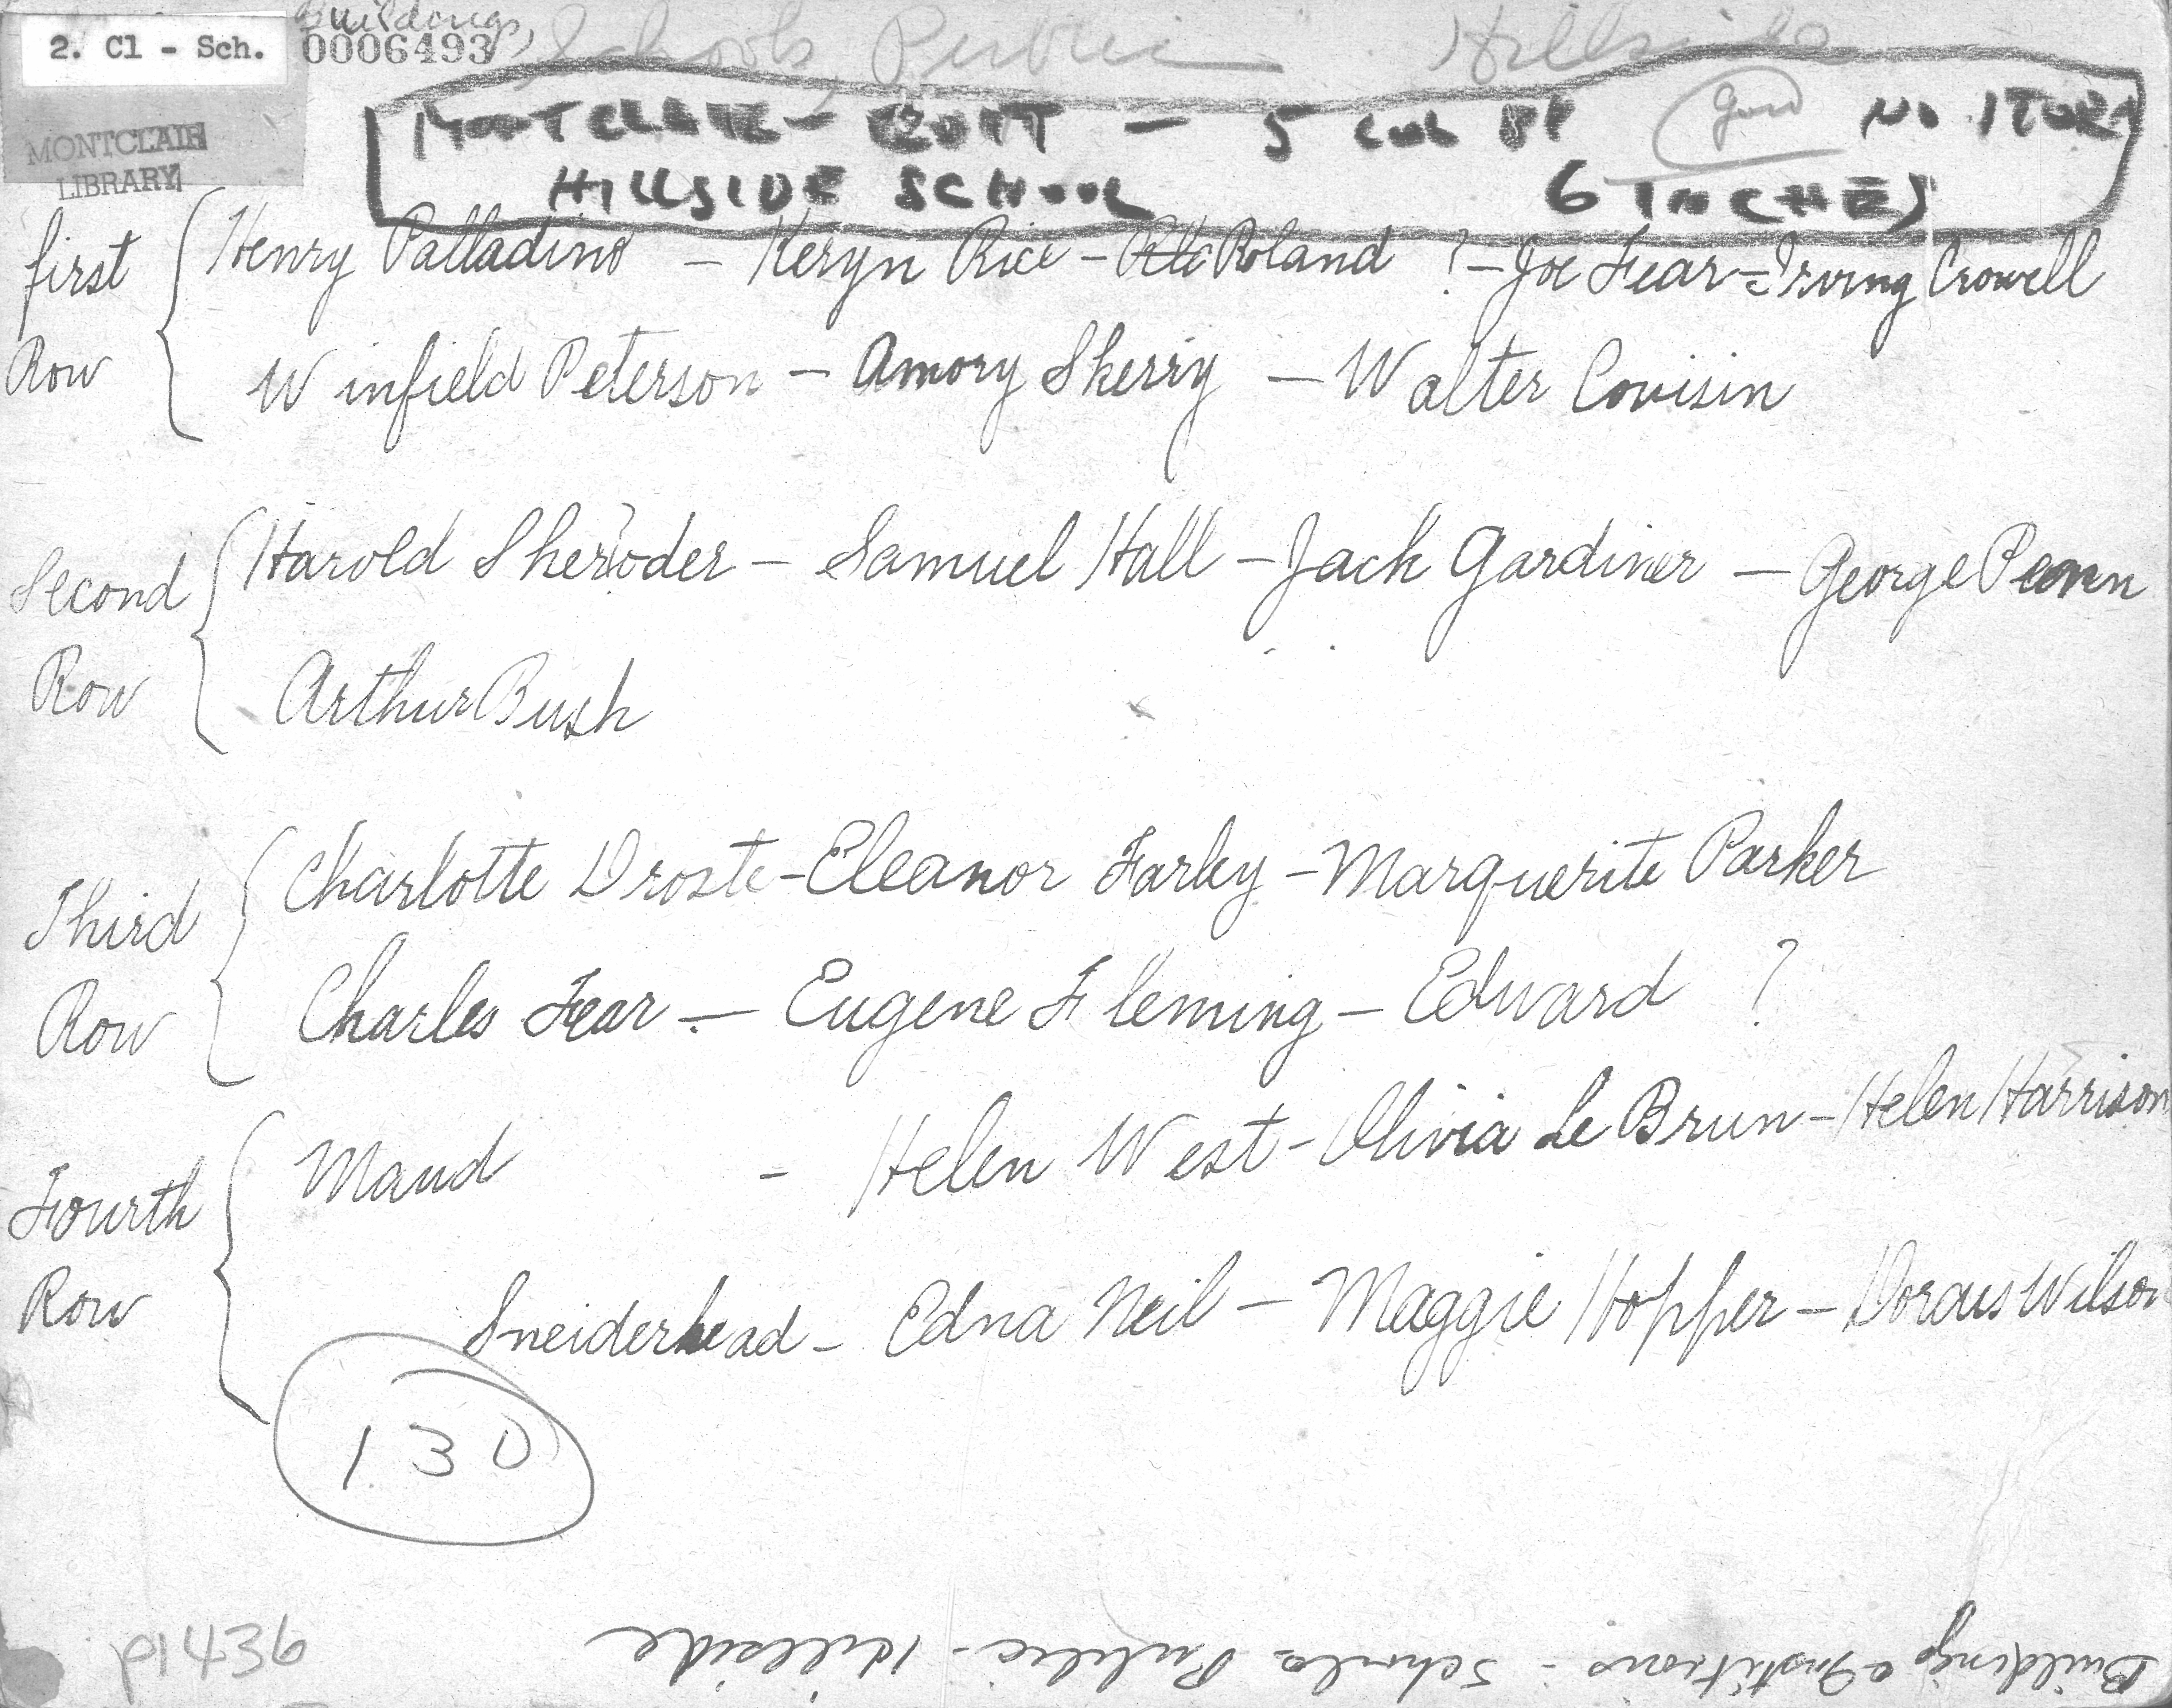 Buildings
2. Cl - Sch. 0006493 Schools, Public Hillside
MONTCLAIR
LIBRARY
MONTCLAIR - EDIT - 5 COL NO STORY
HILLSIDE SCHOOL 6 INCHES
first Row
Henry Palladino - Keryn Rice - Roland ? - Joe Fear - Irving Crowell
Winfield Peterson - Amory Sherry - Walter Covisin
Second Row
Harold Sheroder - Samuel Hall - Jack Gardiner - George Penn
Arthur Bush
Third Row
Charlotte Droste - Eleanor Farley - Marguerite Parker
Charles Fear - Eugene Fleming - Edward ?
Fourth Row
Maud - Helen West - Olivia Le Brun - Helen Harrison
Sneiderhead - Edna Neil - Maggie Hopper - Dorcus Wilson
130
p1436
Buildings & Institutions - Schools Public - Hillside